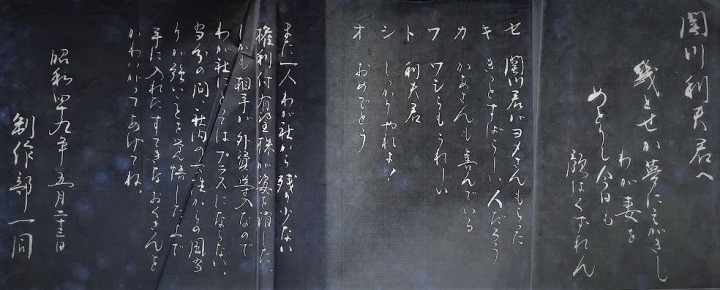 関川利夫君へ
幾とせか夢にえがきし
わが妻を
めとりし今日も
顔はくずれん
セ 関川君がヨメさんもらった
キ きっとすばらしい人だろう
カ かあさんも喜んでいる
ワ ワシらもうれしい
ト 利夫君
シ しっかりやれよ!
オ おめでとう
また一人わが社から残り少ない
権利付有望株が姿を消した。
しかも相手が外資導入なので
わが社にとってはプラスにならない。
当分の間、社内の女性からの風当
りが強いことを覚悟した上で
手に入れたすてきなおくさんを
かわいがってあげてね。
昭和四九年五月二十三日
制作部一同